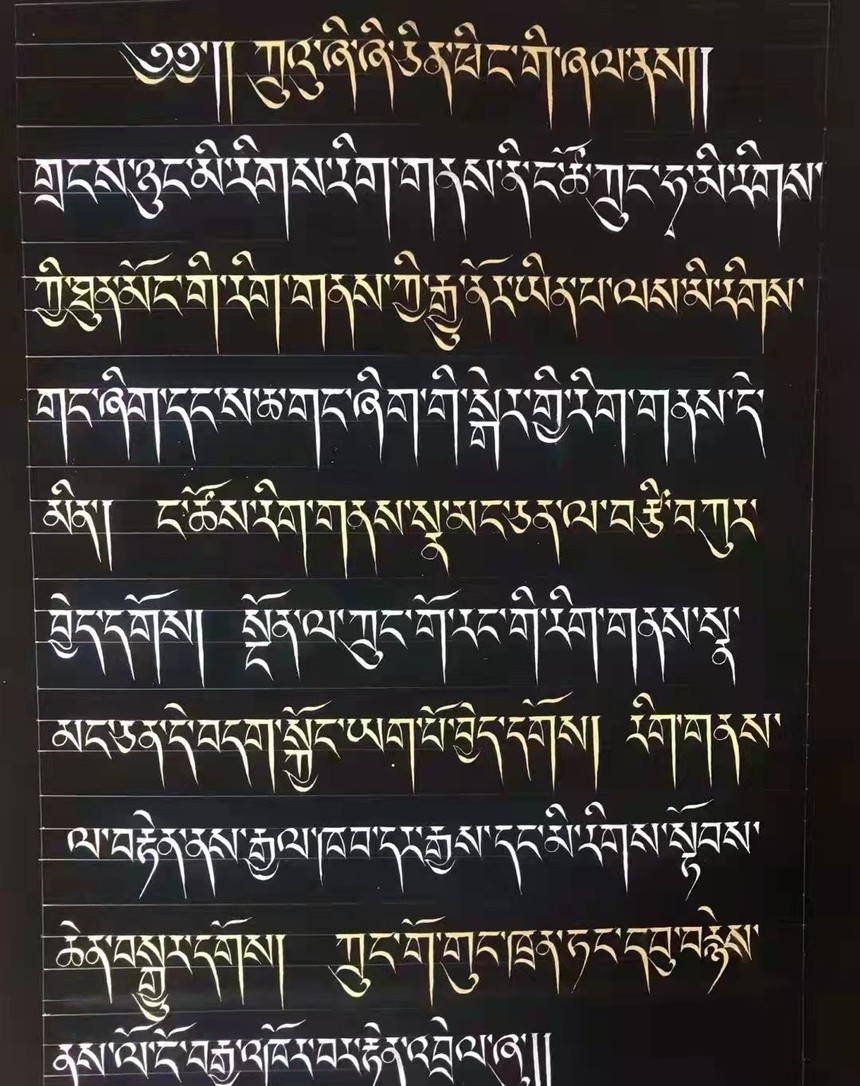 ༄༅།། ཀྲུའུ་ཞི་ཞི་ཅིན་ཕིང་གི་ཞལ་ནས།།
གྲངས་ཉུང་མི་རིགས་རིག་གནས་ནི་ང་ཚོ་ཀྲུང་ཧྭ་མི་རིགས་
ཀྱི་ཐུན་མོང་གི་རིག་གནས་ཀྱི་རྒྱུ་ནོར་ཡིན་པ་ལས་མི་རིགས་
གང་ཞིག་དང་ས་ཆ་གང་ཞིག་གི་སྒེར་གྱི་རིག་གནས་དེ་
མིན། ང་ཚོས་རིག་གནས་སྣ་མང་ཅན་ལ་བརྩི་བཀུར་
བྱེད་དགོས། སྔོན་ལ་ཀྲུང་གོ་རང་གི་རིག་གནས་སྣ་
མང་ཅན་དེ་བདག་སྐྱོང་ཡག་པོ་བྱེད་དགོས། རིག་གནས་
ལ་བརྟེན་ནས་རྒྱལ་ཁབ་དར་རྒྱས་དང་མི་རིགས་སྟོབས་
ཆེན་བསྒྱུར་དགོས། ཀྲུང་གོ་གུང་ཁྲན་ཏང་དབུ་བརྙེས་
ནས་ལོ་ངོ་བརྒྱ་འཁོར་བར་རྟེན་འབྲེལ་ཞུ།།